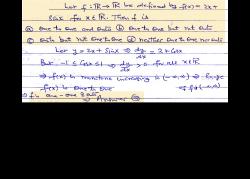 Let f: R → R be defined by f(x) = 2x +
sinx for x ∈ R. Then f is
ⓐ one to one and onto ⓑ one to one but not onto
ⓒ onto but not one to one ⓓ neither one to one nor onto
Let y = 2x + sinx ⇒ dy/dx = 2 + cosx
But -1 ≤ cosx ≤ 1 ⇒ dy/dx > 0 for all x ∈ R
⇒ f(x) is monotone increasing is (-∞, ∞) ⇒ hence
f(x) is one to one
⇒ f is one-one & onto ⇒ Answer ⓐ